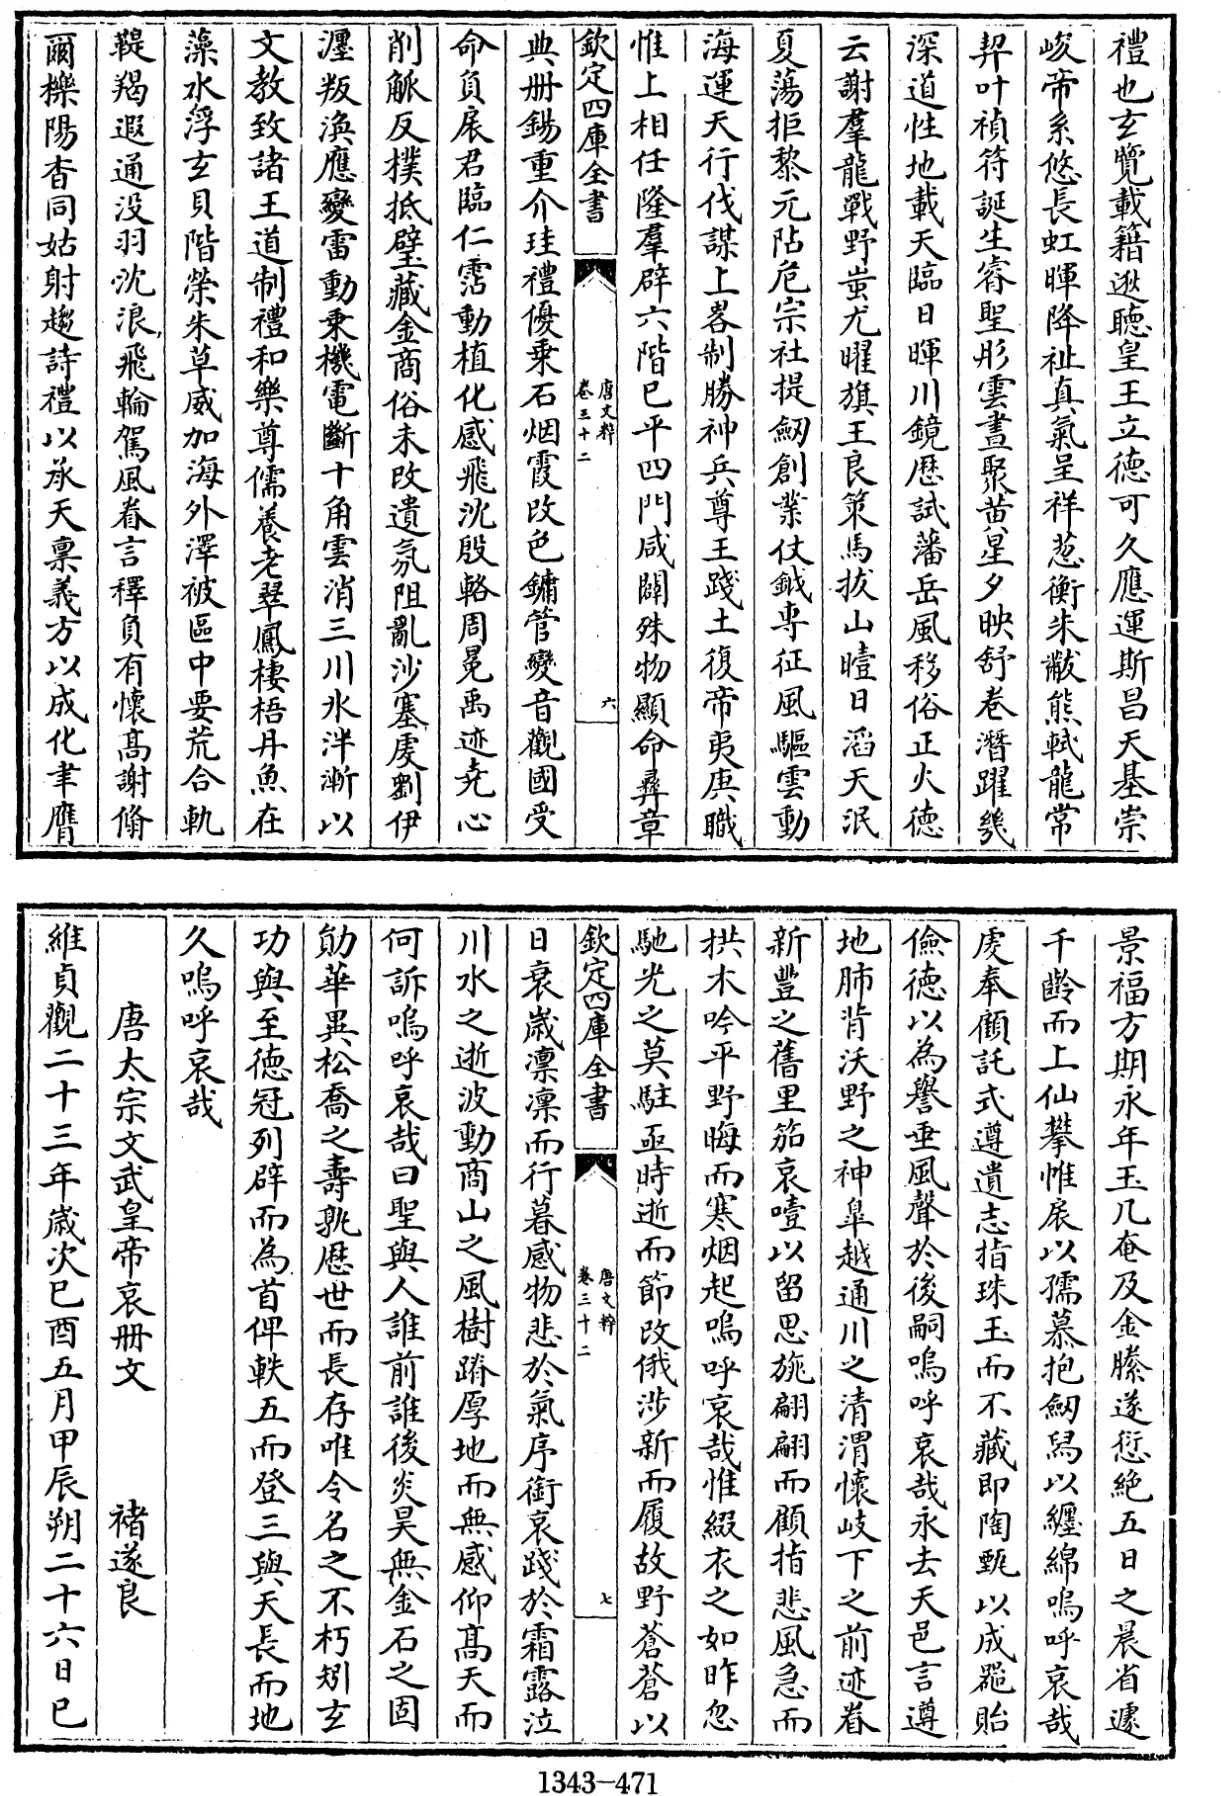 禮也玄覽載籍逖聽皇王立德可久應運斯昌天基崇
峻帝系悠長虹暉降祉真氣呈祥葱衡朱黻熊軾龍常
契叶禎符誕生睿聖彤雲晝聚黄星夕映舒卷潛躍幾
深道性地載天臨日暉川鏡歴試藩岳風移俗正火德
云謝羣龍戰野蚩尤曜旗王良策馬拔山曀日滔天泯
夏蕩拒黎元阽危宗社提劒創業仗鉞專征風驅雲動
海運天行伐謀上畧制勝神兵尊王踐土復帝夷庚職
惟上相任隆羣辟六階已平四門咸闢殊物顯命彛章
欽定四庫全書
唐文粹
卷三十二
六
典册錫重介珪禮優乗石烟霞改色鏞管變音觀國受
命負扆君臨仁霑動植化感飛沈殷輅周冕禹迹堯心
削觚反樸抵璧藏金商俗未改遺氛阻亂沙塞䖍劉伊
瀍叛渙應變雷動乗機電斷十角雲消三川氷泮漸以
文教致諸王道制禮和樂尊儒養老翠鳳棲梧丹魚在
藻水浮玄貝階榮朱草威加海外澤被區中要荒合軌
鞮羯遐通没羽沈浪飛輪駕風眷言釋負有懷髙謝脩
爾櫟陽杳同姑射趨詩禮以承天禀義方以成化聿膺
景福方期永年玉几奄及金縢遂愆絶五日之晨省遽
千齡而上仙攀惟扆以孺慕抱劒舄以纒綿嗚呼哀哉
䖍奉顧託式遵遺志指珠玉而不藏即陶甄以成器貽
儉德以為譽垂風聲於後嗣嗚呼哀哉永去天邑言遵
地肺背沃野之神臯越通川之清渭懷岐下之前迹眷
新豐之舊里笳哀噎以留思旐翩翩而顧指悲風急而
拱木吟平野晦而寒烟起嗚呼哀哉惟綴衣之如昨忽
馳光之莫駐亟時逝而節改俄涉新而履故野蒼蒼以
欽定四庫全書
唐文粹
卷三十二
七
日衰嵗凛凛而行暮感物悲於氣序銜哀踐於霜露泣
川水之逝波動商山之風樹蹐厚地而無感仰髙天而
何訴嗚呼哀哉曰聖與人誰前誰後炎昊無金石之固
勛華異松喬之壽孰厯世而長存唯令名之不朽矧玄
功與至德冠列辟而為首俾軼五而登三與天長而地
久嗚呼哀哉
唐太宗文武皇帝哀册文　褚遂良
維貞觀二十三年嵗次已酉五月甲辰朔二十六日已
1343-471